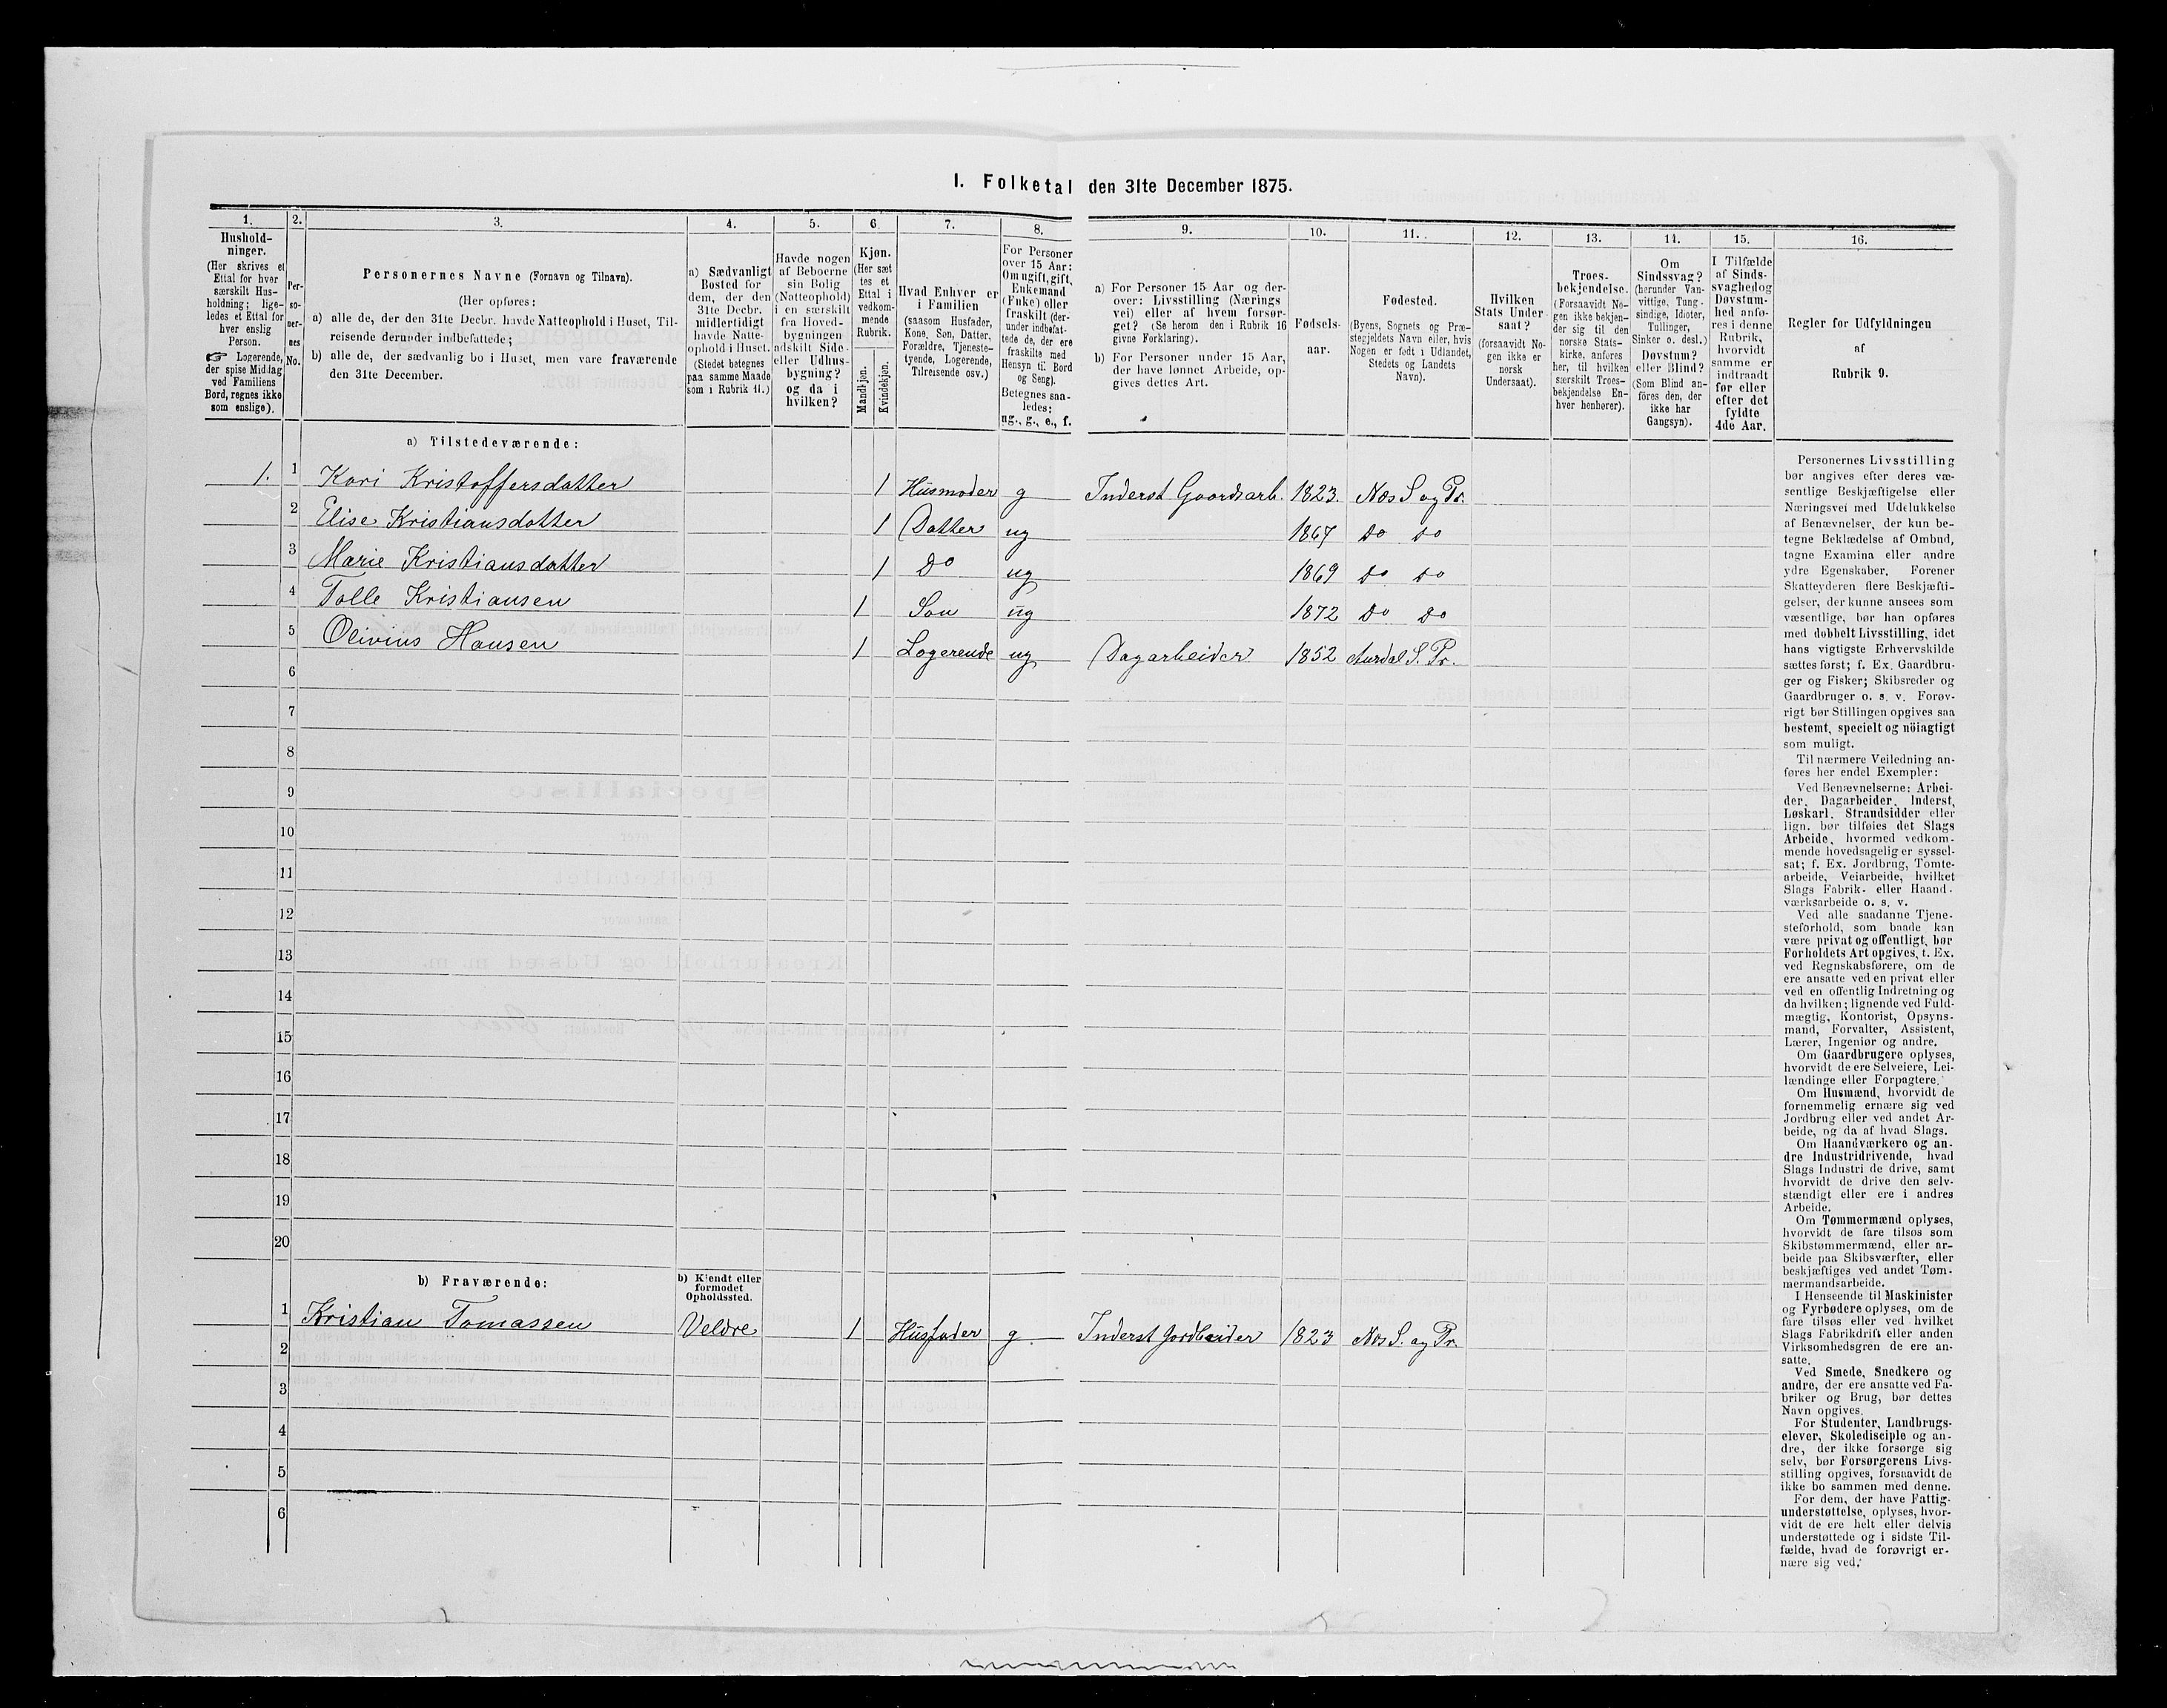 I. Folketal den 31te December 1875.
1.
2.
3.
4.
5.
6
7.
8.
9.
10.
11.
12.
13.
14.
15.
16.
Hushold-
ninger.
(Her skrives et
Ettal for hver
særskilt Hus-
holdning; lige-
ledes et Ettal for
hver enslig
Person.
☞ Logerende,
der spise Middag
ved Familiens
Bord, regnes ikke
som enslige).
Per-
so-
ner-
nes
No.
Personernes Navne (Fornavn og Tilnavn).
(Her opføres:
a) alle de, der den 31te Decbr. havde Natteophold i Huset, Til-
reisende derunder indbefattede;
b) alle de, der sædvanlig bo i Huset, men vare fraværende
den 31te December.
a) Sædvanligt
Bosted for
dem, der den
31te Decbr.
midlertidigt
havde Natte-
ophold i Huset.
(Stedet betegnes
paa samme Maade
som i Rubrik 11.)
Havde nogen
af Beboerne
sin Bolig
(Natteophold)
i en særskilt
fra Hoved-
bygningen
adskilt Side-
eller Udhus-
bygning?
og da i
hvilken?
Kjøn.
(Her sæt
tes et
Ettal i
vedkom-
mende
Rubrik.
Mandkjøn.
Kvindekjøn.
Hvad Enhver er
i Familien
(saasom Husfader,
Kone, Søn, Datter,
Forældre, Tjeneste-
tyende, Logerende,
Tilreisende osv.)
For Personer
over 15 Aar:
Om ugift, gift,
Enkemand
(Enke) eller
fraskilt (der-
under indbefat-
tede de, der ere
fraskilte med
Hensyn til Bord
og Seng).
Betegnes saa-
ledes:
ug., g., e., f.
a) For Personer 15 Aar og der-
over: Livsstilling (Nærings
vei) eller af hvem forsør-
get? (Se herom den i Rubrik 16
givne Forklaring).
b) For Personer under 15 Aar,
der have lønnet Arbeide, op-
gives dettes Art.
Fødsels-
aar.
Fødested.
(Byens, Sognets og Præ-
stegjeldets Navn eller, hvis
Nogen er født i Udlandet,
Stedets og Landets
Navn).
Hvilken
Stats Under
saat?
(forsaavidt No-
gen ikke er
norsk
Undersaat).
Troes-
bekjendelse.
(Forsaavidt No-
gen ikke bekjen-
der sig til den
norske Stats-
kirke, anføres
her, til hvilken
særskilt Troes-
bekjendelse En-
hver henhører).
Om
Sindssvag?
(herunder Van-
vittige, Tung-
sindige, Idioter,
Tullinger,
Sinker o. desl.)
Døvstum?
eller Blind?
(Som Blind an-
føres den, der
ikke har
Gangsyn).
I Tilfælde
af Sinds-
svaghed og
Døvstum-
hed anfø-
res i denne
Rubrik,
hvorvidt
samme er
indtraadt
før eller
efter det
fyldte
4de Aar.
Regler for Udfyldningen
af
Rubrik 9.
a) Tilstedeværende:
1. 1 Kari Kristoffersdatter 1 Husmoder g Inderst Gaardsarb. 1823. Næs S og Pr.
2 Elise Kristiansdatter 1 Datter ug 1867 Do Do
3 Marie Kristiansdatter 1 Do ug 1869 Do Do
4 Tolle Kristiansen 1 Søn ug 1872 Do Do
5 Olivius Hansen 1 Logerende ug Dagarbeider 1852 Aurdal S. Pr.
6
7
8
9
10
11
12
13
14
15
16
17
18
19
20
b) Fraværende:
b) Kjendt eller
formodet
Opholdssted.
1 Kristian Tomassen Veldre 1 Husfader g. Inderst Gardbeider 1823 Næs S. og Pr.
2
3
4
5
6
Personernes Livsstilling
bør angives efter deres væ-
sentlige Beskjæftigelse eller
Næringsvei med Udelukkelse
af Benævnelser, der kun be-
tegne Beklædelse af Ombud,
tagne Examina eller andre
ydre Egenskaber. Forener
Skatteyderen flere Beskjæfti-
gelser, der kunne ansees som
væsentlige, bør han opføres
med dobbelt Livsstilling, idet
hans vigtigste Erhvervskilde
sættes først; f. Ex. Gaardbru-
ger og Fisker; Skibsreder og
Gaardbruger o. s. v. Forøv-
rigt bør Stillingen opgives saa
bestemt, specielt og nöiagtigt
som muligt.
Til nærmere Veiledning an-
føres her endel Exempler:
Ved Benævnelserne: Arbei-
der, Dagarbeider, Inderst,
Løskarl, Strandsidder eller
lign. bør tilføies det Slags
Arbeide, hvormed vedkom-
mende hovedsagelig er syssel-
sat; f. Ex. Jordbrug, Tomte-
arbeide, Veiarbeide, hvilket
Slags Fabrik- eller Haand-
værksarbeide o. s. v.
Ved alle saadanne Tjene-
steforhold, som baade kan
være privat og offentligt, bør
Forholdets Art opgives, f. Ex.
ved Regnskabsførere, om de
ere ansatte ved en privat eller
ved en offentlig Indretning og
da hvilken; lignende ved Fuld-
mægtig, Kontorist, Opsyns-
mand, Forvalter, Assistent,
Lærer, Ingeniør og andre.
Om Gaardbrugere oplyses,
hvorvidt de ere Selveiere, Lei-
lændinge eller Forpagtere.
Om Husmænd, hvorvidt de
fornemmelig ernære sig ved
Jordbrug eller ved andet Ar-
beide, og da af hvad Slags.
Om Haandværkere og an-
dre Industridrivende, hvad
Slags Industri de drive, samt
hvorvidt de drive den selv-
stændigt eller ere i andres
Arbeide.
Om Tømmermænd oplyses,
hvorvidt de fare tilsøs som
Skibstømmermænd, eller ar-
beide paa Skibsværfter, eller
beskjæftiges ved andet Tøm-
mermandsarbeide.
I Henseende til Maskinister
og Fyrbødere oplyses, om de
fare tilsøs eller ved hvilket
Slags Fabrikdrift eller anden
Virksomhedsgren de ere an-
satte.
Ved Smede, Snedkere og
andre, der ere ansatte ved Fa-
briker og Brug, bør dettes
Navn opgives.
For Studenter, Landbrugs-
elever, Skoledisciple og an-
dre, der ikke forsørge sig
selv, bør Forsørgerens Livs-
stilling opgives, forsaavidt de
ikke bo sammen med denne.
For dem, der have Fattig-
understøttelse, oplyses, hvor-
vidt de ere helt eller delvis
understøttede og i sidste Til-
fælde, hvad de forøvrigt er-
nære sig ved.